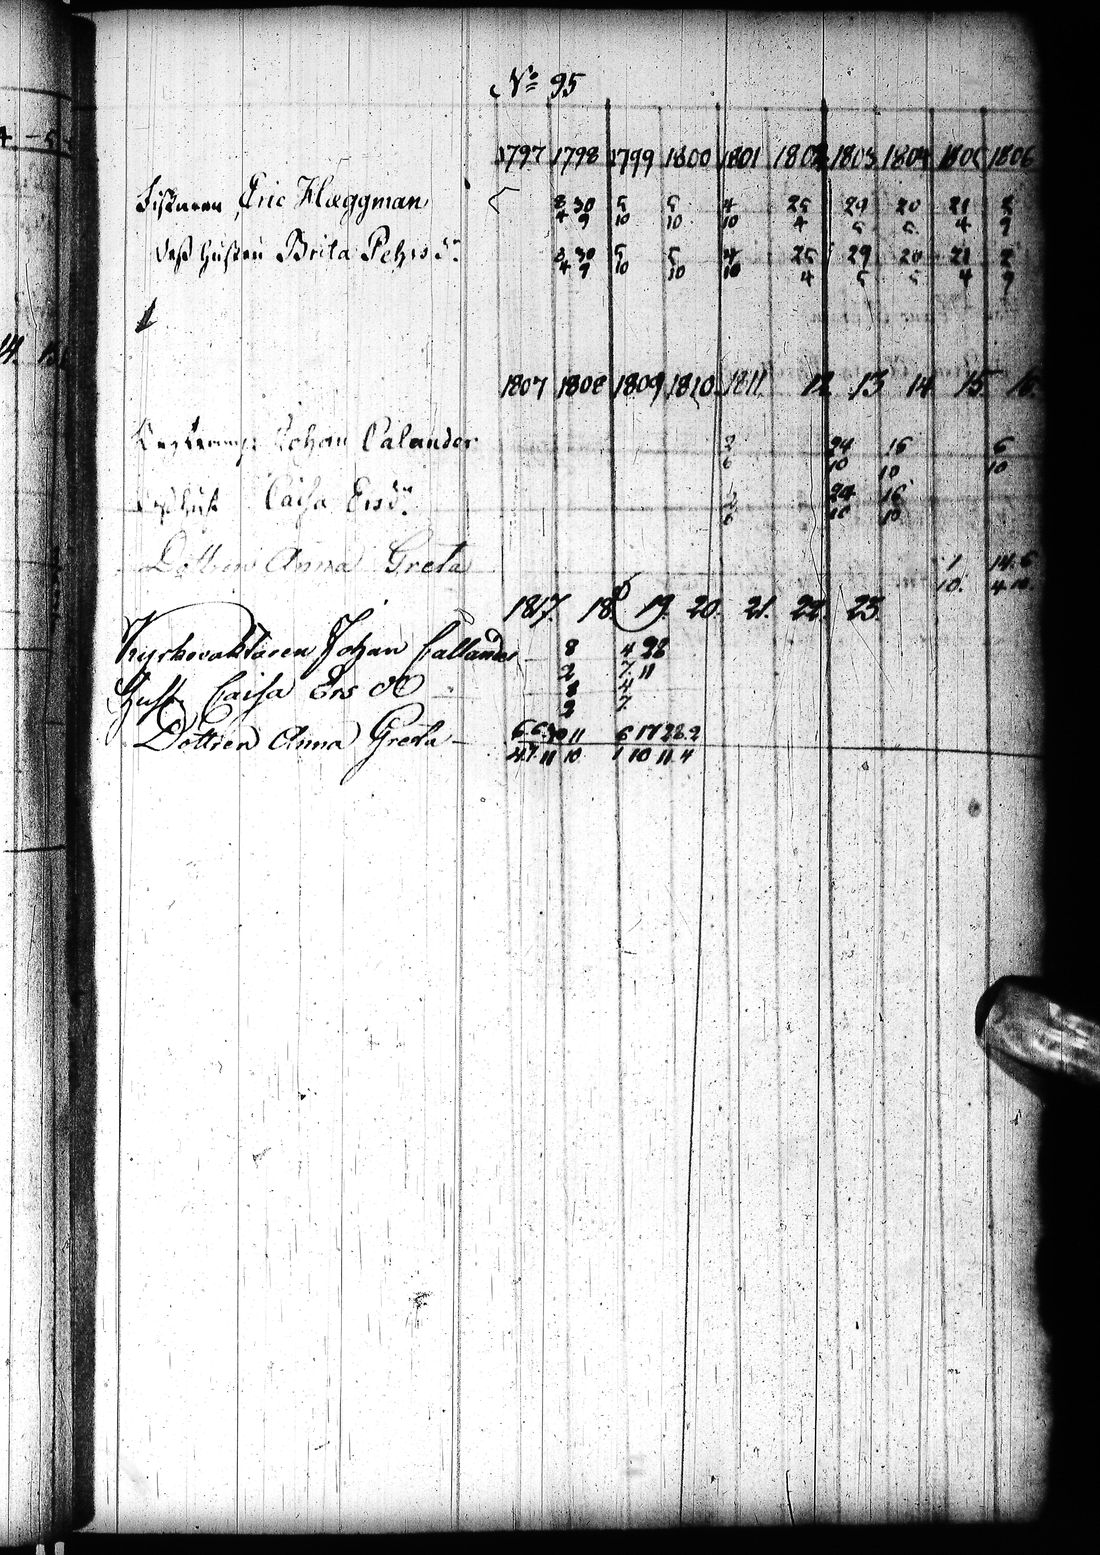 No 95
1797 1798 1799 1800 1801 1802 1803 1804 1805 1806
Fiskaren Eric Hæggman 8 30 5 5 4 25 29 20 21 2
4 9 10 10 10 4 5 5 4 9
Dess Hustru Brita Pehrsdr 8 30 5 5 4 25 29 20 21 2
4 9 10 10 10 4 5 5 4 9
1807 1808 1809 1810 1811 12 13 14 15 16
Johan Calander 2 24 16 6
6 10 10 10
Hust Caisa Ersdr 2 24 16
6 10 10
Dottren Anna Greta 1 14. 6
10. 4 10
1817. 18. 19. 20. 21. 22. 23.
Kyrkovaktaren Johan Callander 8 4 28
2 7. 11
Hust Caisa Ers 8 4
2 7.
Dottren Anna Greta 11 6 17 28. 2
4. 7. 11 10 1 10 11. 4